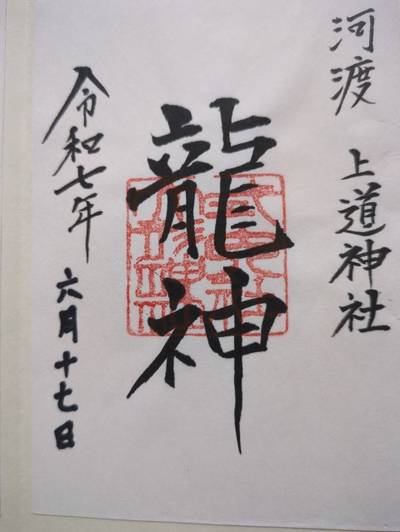 河渡 上道神社
龍神
令和七年 六月十七日